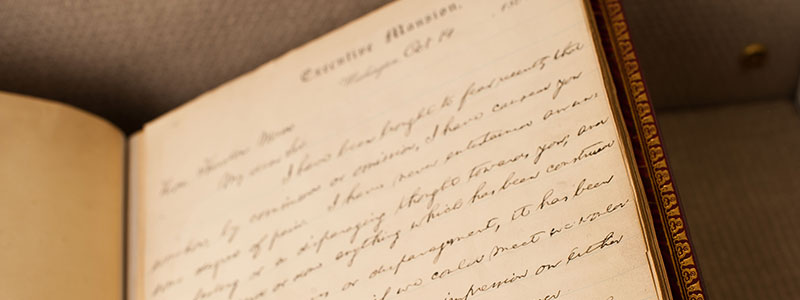 Executive Mansion,
Washington, Oct 14
Hon. Thurlow Weed
My dear Sir:
I have been brought to fear recently that
somehow, by commission or omission, I have caused you
some degree of pain. I have never entertained an un-
feeling or a disparaging thought towards you; and
or done anything which has been construed
or disparagement, it has been
if we could meet we would
impression on either